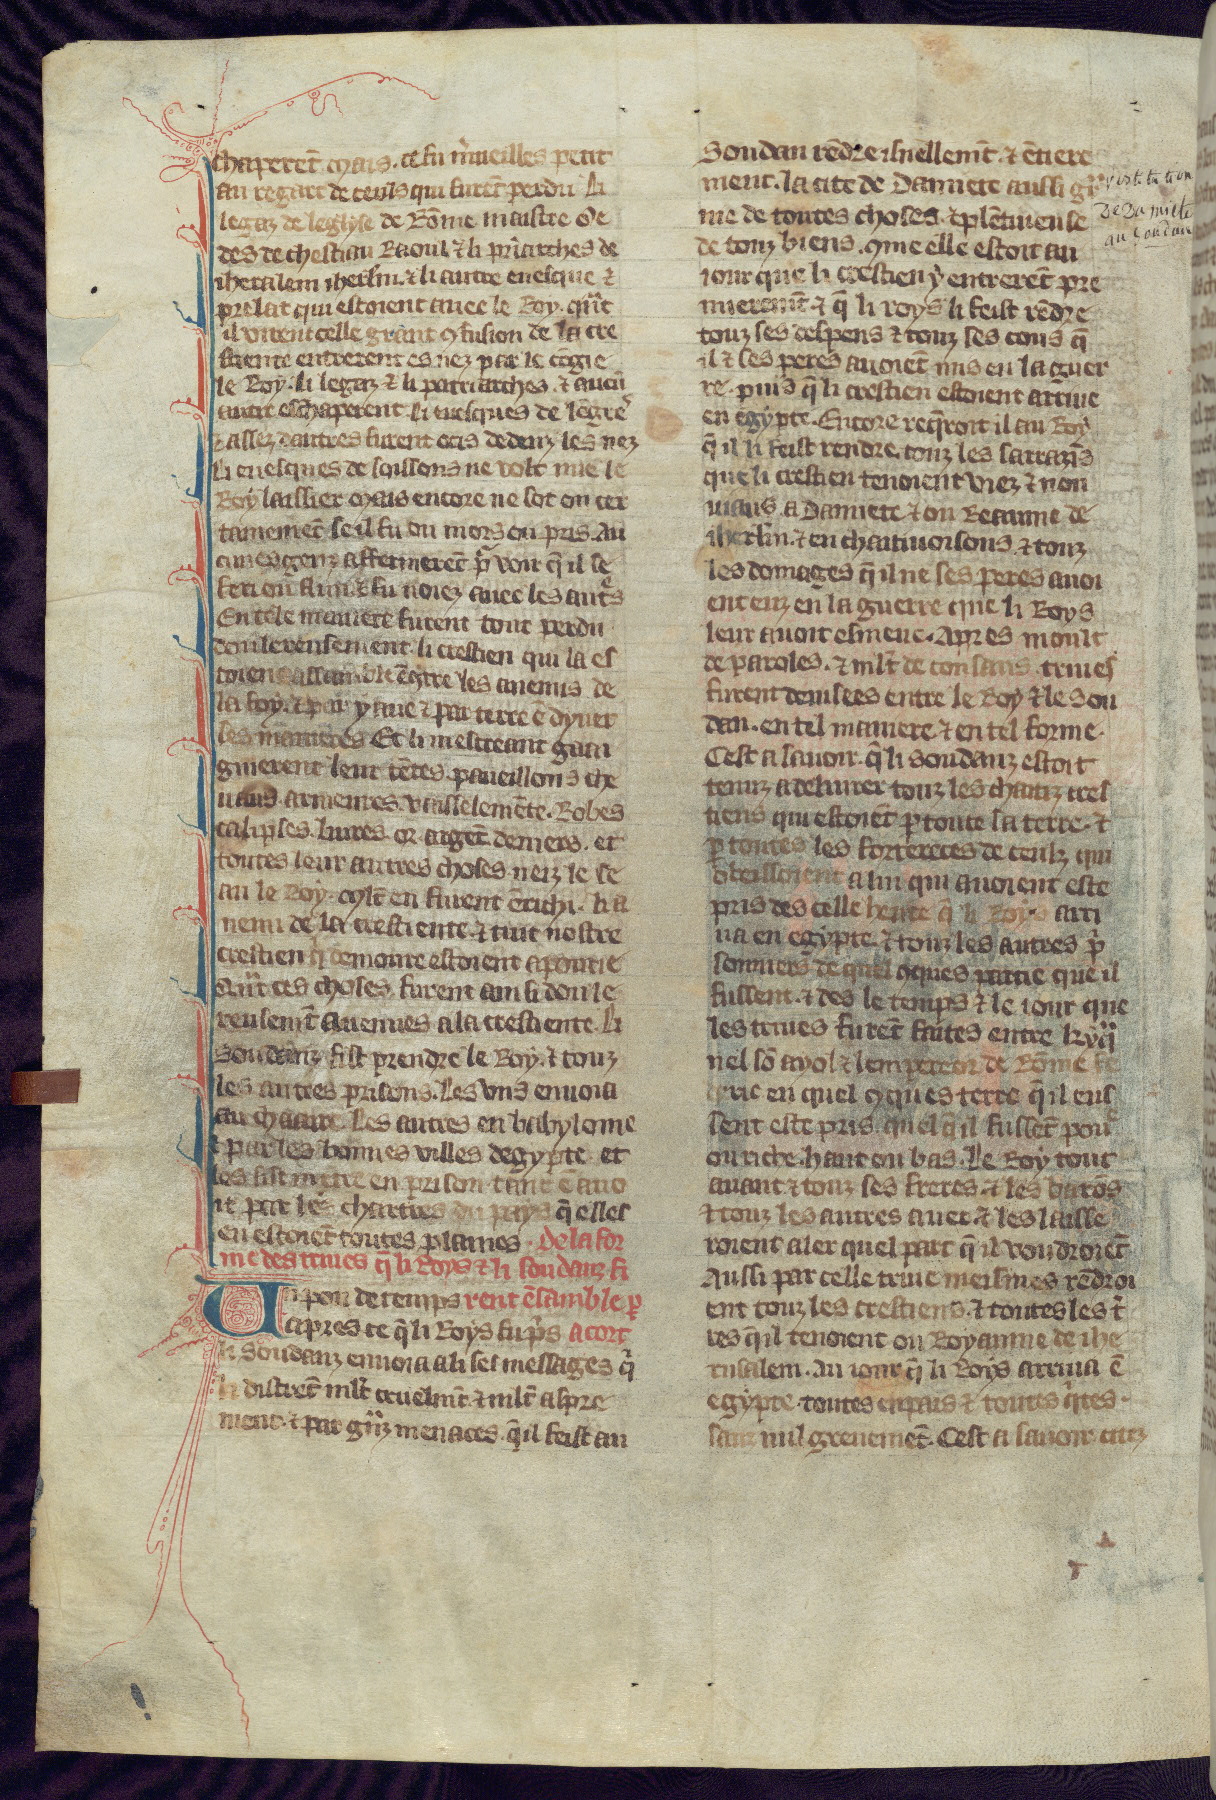 chaperēt mais. ce fu m̄ueilles petit
au regart de ceuls qui furēt perdu. li
legaz de leglyse de Rōme maistre oe
des de chestiau Raoul. ⁊ li pat̄arches de
iherusalem iherl̄m. ⁊ li autre euesque ⁊
prelat qui estoient auec le Roy. qn̄t
il virent celle grant ꝯfusion de la cre
stiente entrerent es nez par le cōgie
le Roy. li legaz ⁊ li patriarches. ⁊ aucū
autre eschaperent. li euesques de
⁊ assez dautres furent ocis dedenz les nez
li euesques de soissons ne volt mie le
Roy laissier. mais encore ne sot on cer
tainemēt se il fu ou mors ou pris. Au
cunes genz affermerēt p̄ voir q̄ il se
feri ou flun. ⁊ fu noiez auec les aut̄s
En tele maniere furent tout perdu
doulereusement li crestien qui la es
toient assamble cōtre les anemis de
la foy. ⁊ par yaue ⁊ par terre ē dyuer
ses manieres. Et li mescreant gaai
gnierent leur tētes. paueillons. che
uaus. armeures. vaisselemēte. Robes
calipses. liures. or. argēt. deniers. et
toutes leur autres choses. neiz le se
au le Roy. mlt̄ en furent ērichi. li a
nemi de la crestiente. ⁊ tuit nostre
crestien q̄ demoure estoient apourie
Qn̄t ces choses furent ainsi doule
reusemēt auenues a la crestiente. li
Soudanz fist prendre le Roy. ⁊ touz
les autres prisons. Les vns enuoia
au chaaire. les autres en babyloine
⁊ par les bonnes villes degypte. et
les fist metre en prison. tant ē auo
it par les chartres du pays q̄ elles
en estoiēt toutes plaines. De la for
me des triues q̄ li Roys ⁊ li soudanz fi
Un pou de temps rent ēsamble p̄
apres ce q̄ li Roys fu p̄s acort
li Soudanz enuoia a li ses messages q̄
li distrēt mlt̄ cruelmēt ⁊ mlt̄ aspre
ment. ⁊ par gn̄z menaces. q̄ il feist au
Soudan rēdre isnellemēt. ⁊ ētiere
ment. la cite de Damiete aussi
me de toutes choses. ⁊ plētiueuse
de touz biens. ꝯme elle estoit au
iour que li crestien y entrerēt pre
mieremēt. ⁊ q̄ li roys li feist rēdre
touz ses despens ⁊ touz ses cous q̄
il ⁊ ses peres auoiēt mis en la guer
re. puis q̄ li crestien estoient arriue
en egypte. Encore reqroit il au Roy
q̄ il li feist rendre. touz les sarrazīs
que li crestien tenoient viez ⁊ nou
uiaus. a Damiete ⁊ ou Reaume de
iherl̄m. ⁊ en chaitiuoisons. ⁊ touz
les domages q̄ il ne ses peres auoi
ent euz en la guerre que li Roys
leur auoit esmeue. Apres moult
de paroles. ⁊ mlt̄ de consaus. triues
furent deuisees entre le Roy ⁊ le Sou
dan. en tel maniere ⁊ en tel forme.
Cest a sauoir. q̄ li soudanz estoit
tenuz a deliurer touz les chaitiz cres
tiens qui estoiēt p̄ toute sa terre. ⁊
p̄ toutes les forterces de ceulz qui
obeissoient a lui qui auoient este
pris des celle heure q̄ li Roys arri
ua en egypte. ⁊ touz les autres p̄
sonniers de quel ꝯques partie que il
fussent. ⁊ des le temps ⁊ le iour que
les triues furēt faites entre kyq̄
nel sō ayol ⁊ lempereor de Rōme fe
deric en quel ꝯques terre q̄ il eus
sent este pris. quel q̄ il fussēt pou
ou riche. haut ou bas. Le Roy tout
auant ⁊ touz ses freres. ⁊ les barōs
⁊ touz les autres auec. ⁊ les laisse
roient aler quel part q̄ il voudroiēt
Aussi par celle triue meismes rēdroi
ent touz les crestiens. ⁊ toutes les t̄
res q̄ il tenoient ou Royaume de ihe
rusalem. Au iour q̄ li Roys arriua ē
egypte. toutes enpais ⁊ toutes q̄tes.
sanz nul greuemēt. Cest a sauoir
De Damiete